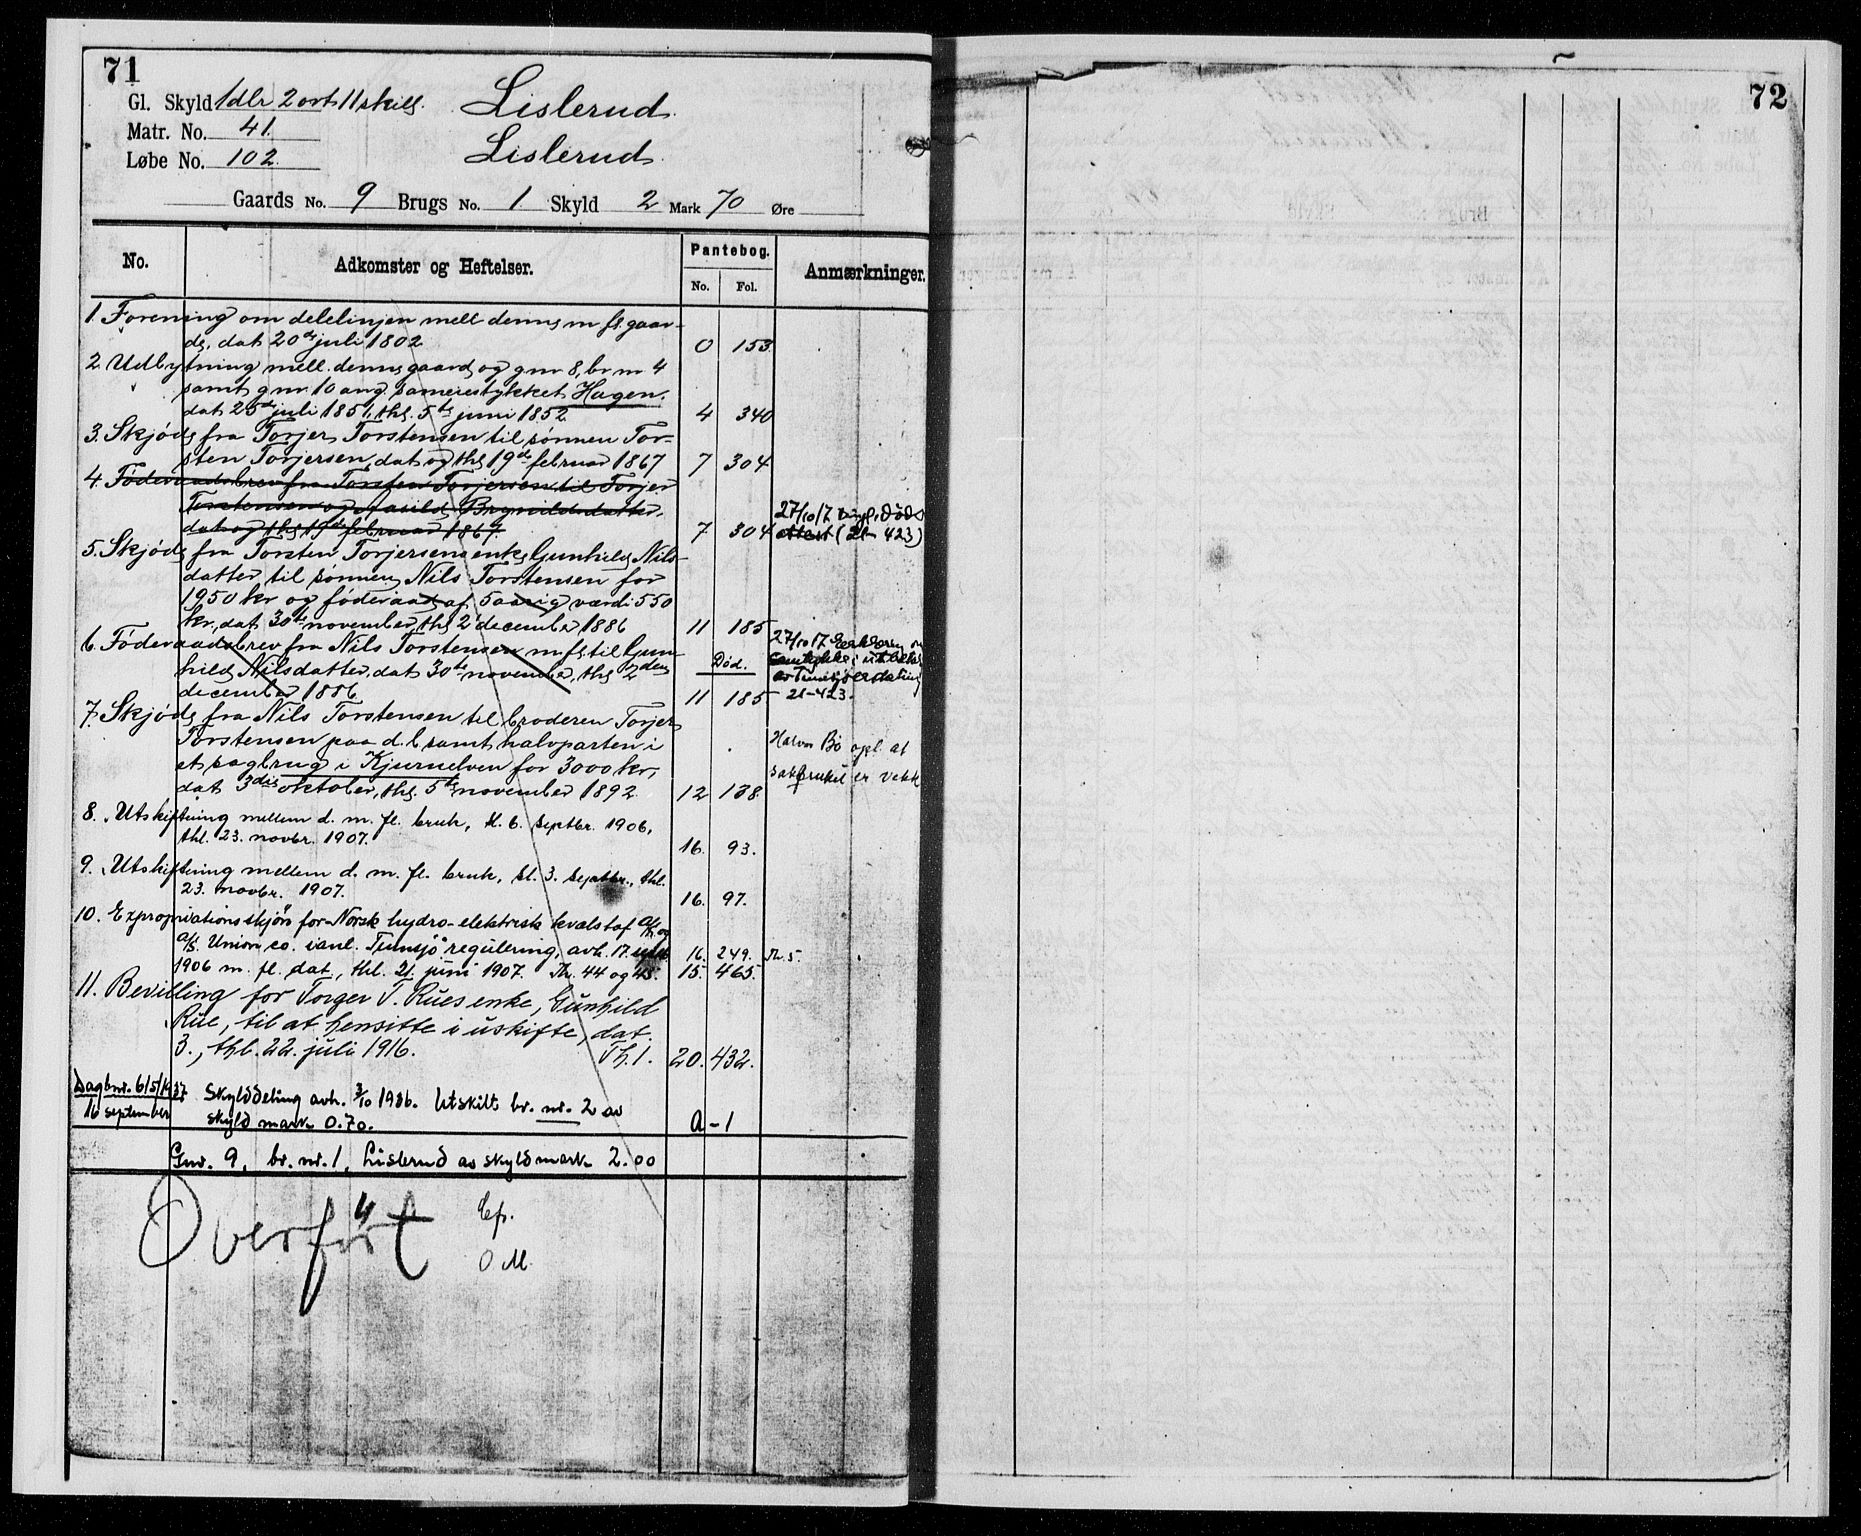 71
Gl. Skyld 1 dlr 2 ort 11 skill. Lislerud.
Matr. No. 41.
Løbe No. 102. Lislerud.
Gaards No. 9 Brugs No. 1 Skyld 2 Mark 70 Øre
No. Adkomster og Heftelser. Pantebog. Anmærkninger.
No. Fol.
1. Forening om delelinjen mell denne m fl. gaar-
de, dat 20de juli 1802 0 153.
2. Udbytning mell. denne gaard og gnr 8, br nr 4
samt gnr. 10 ang. sameiestykket Hagen.
dat 25de juli 1851, thl. 5te juni 1852 4 340
3. Skjøde fra Torjer Torstensen til sønnen Tor-
sten Torjersen, dat og thl 19de februar 1867 7 304
4. Føderaadsbrev fra Torsten Torjersen til Torjer
Torstensen og Aasild Brynildsdatter.
dat og thl 19de februar 1867. 7 304
27/10 17 tingl. døds
attest (21- 423)
5. Skjøde fra Torsten Torjersens enke Gunhild Nils-
datter til sønnen Nils Torstensen for
1950 kr og føderaad af 5aarig værdi 550
kr., dat 30te november, thl 2 december 1886 11 185
6. Føderaadsbrev fra Nils Torstensen m fl til Gun-
hild Nilsdatter, dat 30te november, thl 2den
december 1886 Død. 11 185
27/10 17 Erklæring
21-423.
7. Skjøde fra Nils Torstensen til broderen Torjer
Torstensen paa d. b samt halvparten i
et sagbrug i Kjurruelven for 3000 kr,
dat 3die oktober, thl. 5te november 1892. 12 138.
Halvor Bø opl. at
sakbruket er vekk
8. Utskiftning mellem d. m. fl. bruk, sl. 6. septbr. 1906,
thl. 23. novbr. 1907. 16. 93.
9. Utskiftning mellem d. m. fl. bruk, sl. 3. septbr., thl.
23. novbr. 1907. 16. 97.
10. Expropriationsskjøn for Norsk hydro-elektrisk kvælstof a/s og
a/s. Union co. i anl. Tinnsjø regulering, avh. 17. septbr. 16. 249. Th. 5.
1906 m. fl. dat, thl. 21. juni 1907. Th. 44 og 45. 15. 465.
11. Bevilling for Torger T. Rues enke, Gunhild
Rue, til at hensitte i uskifte, dat.
3., thl. 22. juli 1916. Th. 1. 20. 432.
Dagbnr. 615/1937 Skylddeling avh. 3/10 1936. Utskilt br. nr. 2 av
16 september skyld mark 0.70. A - 1
Gnr. 9, br. nr. 1, Lislerud av skyldmark 2.00
Overført Ep.
O M.
72